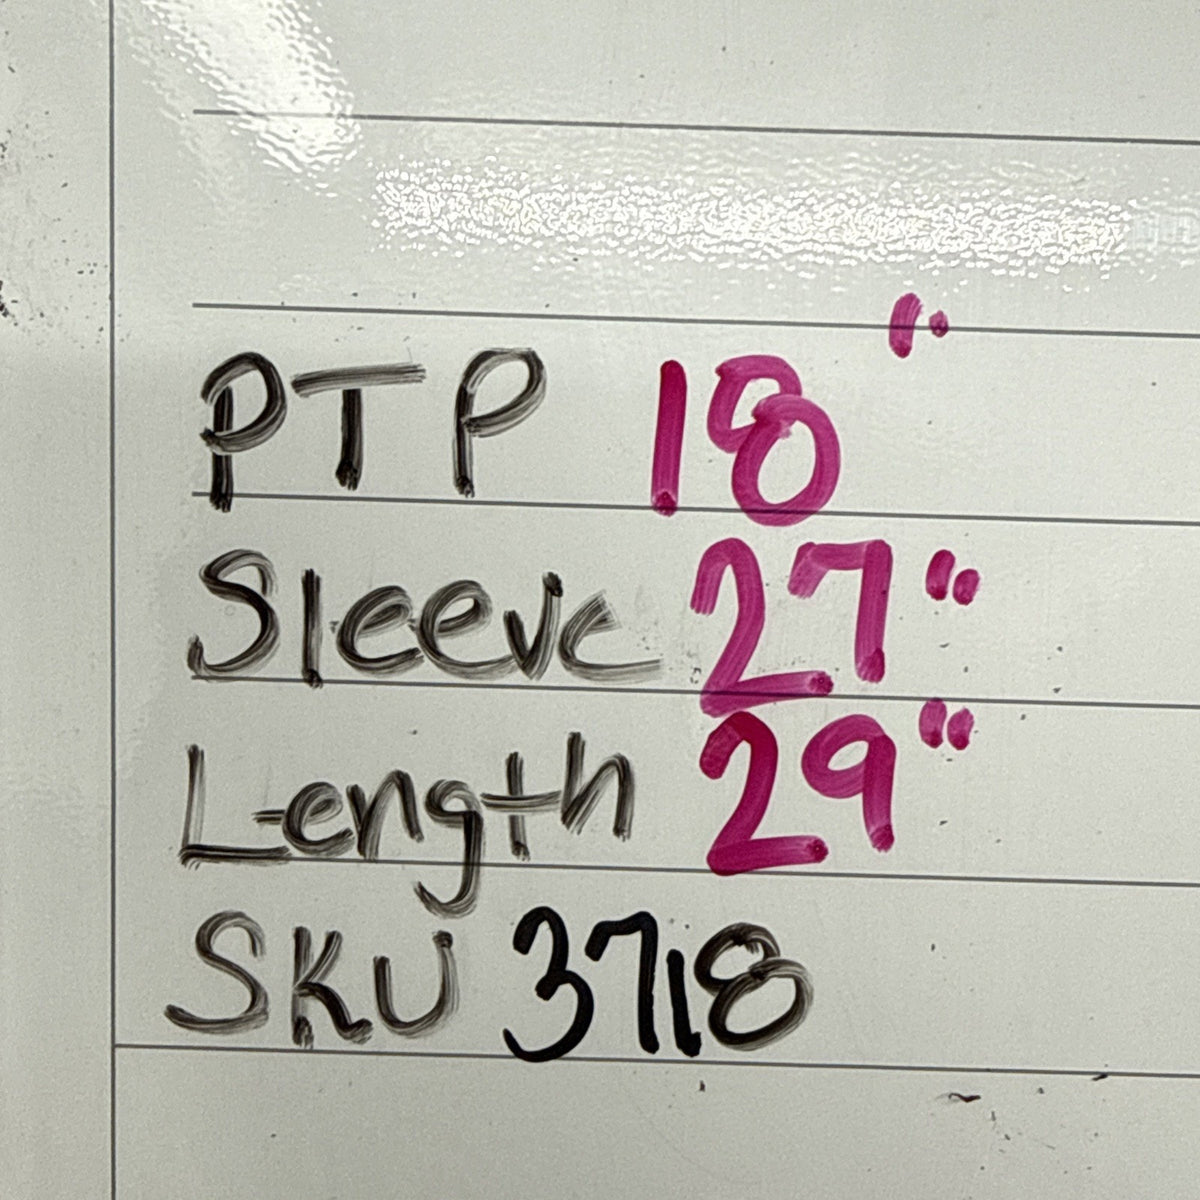 PTP 18"
Sleeve 27"
Length 29"
SKU 3718